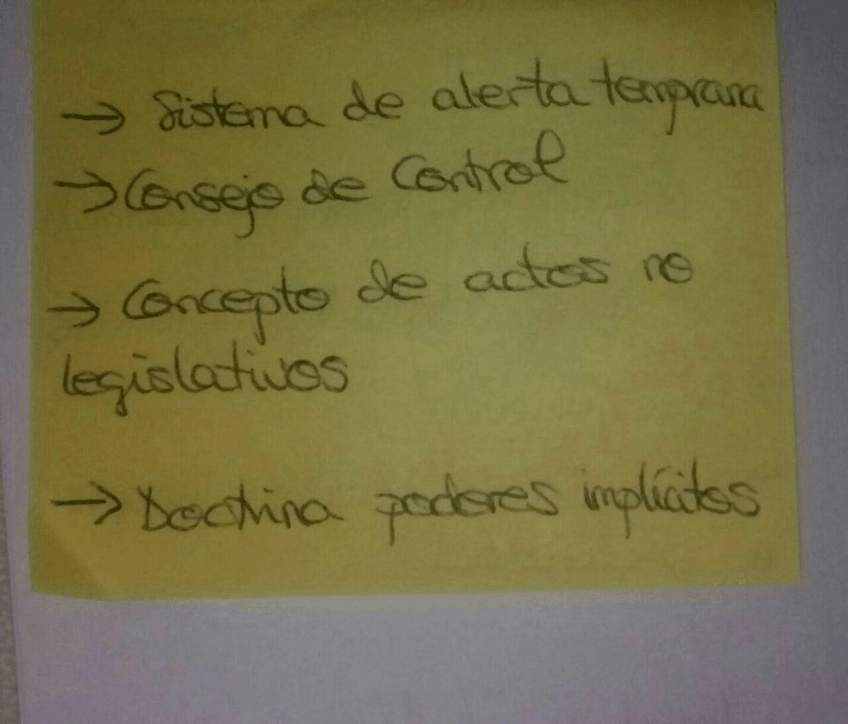 → Sistema de alerta temprana
→ Consejo de Control
→ Concepto de actos no
legislativos
→ Doctrina poderes implícitos